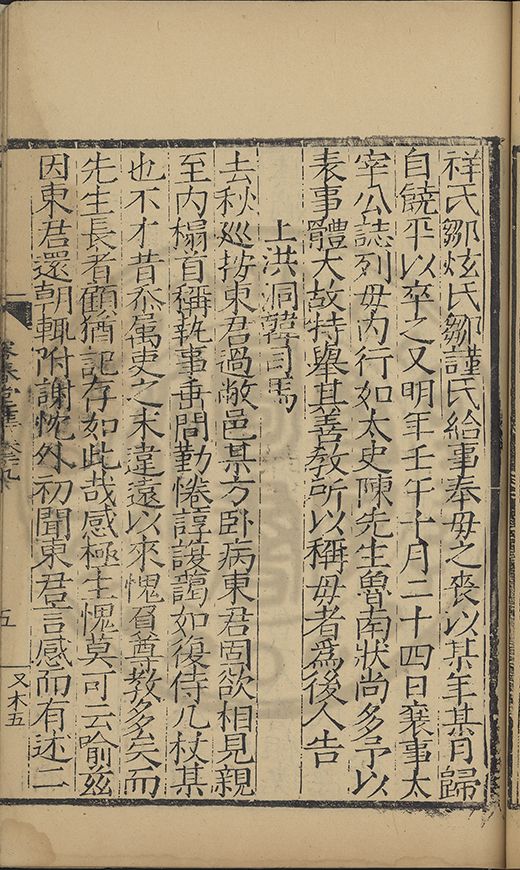 祥氏鄒炫氏鄒謹氏給事奉毋之喪以某年某月歸
自饒平以卒之又明年壬午十月二十四日襄事太
宰公誌列毋內行如太史陳先生魯南狀尚多予以
表事體大故特舉其善教所以稱毋者為後人告
上洪洞韓司馬
去秋巡按東君過敝邑某方卧病東君固欲相見親
至内榻首稱執事垂問勤惓諄諼藹如復侍几杖某
也不才昔忝属吏之末違遠以來愧負尊教多矣而
先生長者顧猶記存如此哉感極生愧莫可云喻兹
因東君還朝輒附謝忱外初聞東君言感而有述二
五
又木五